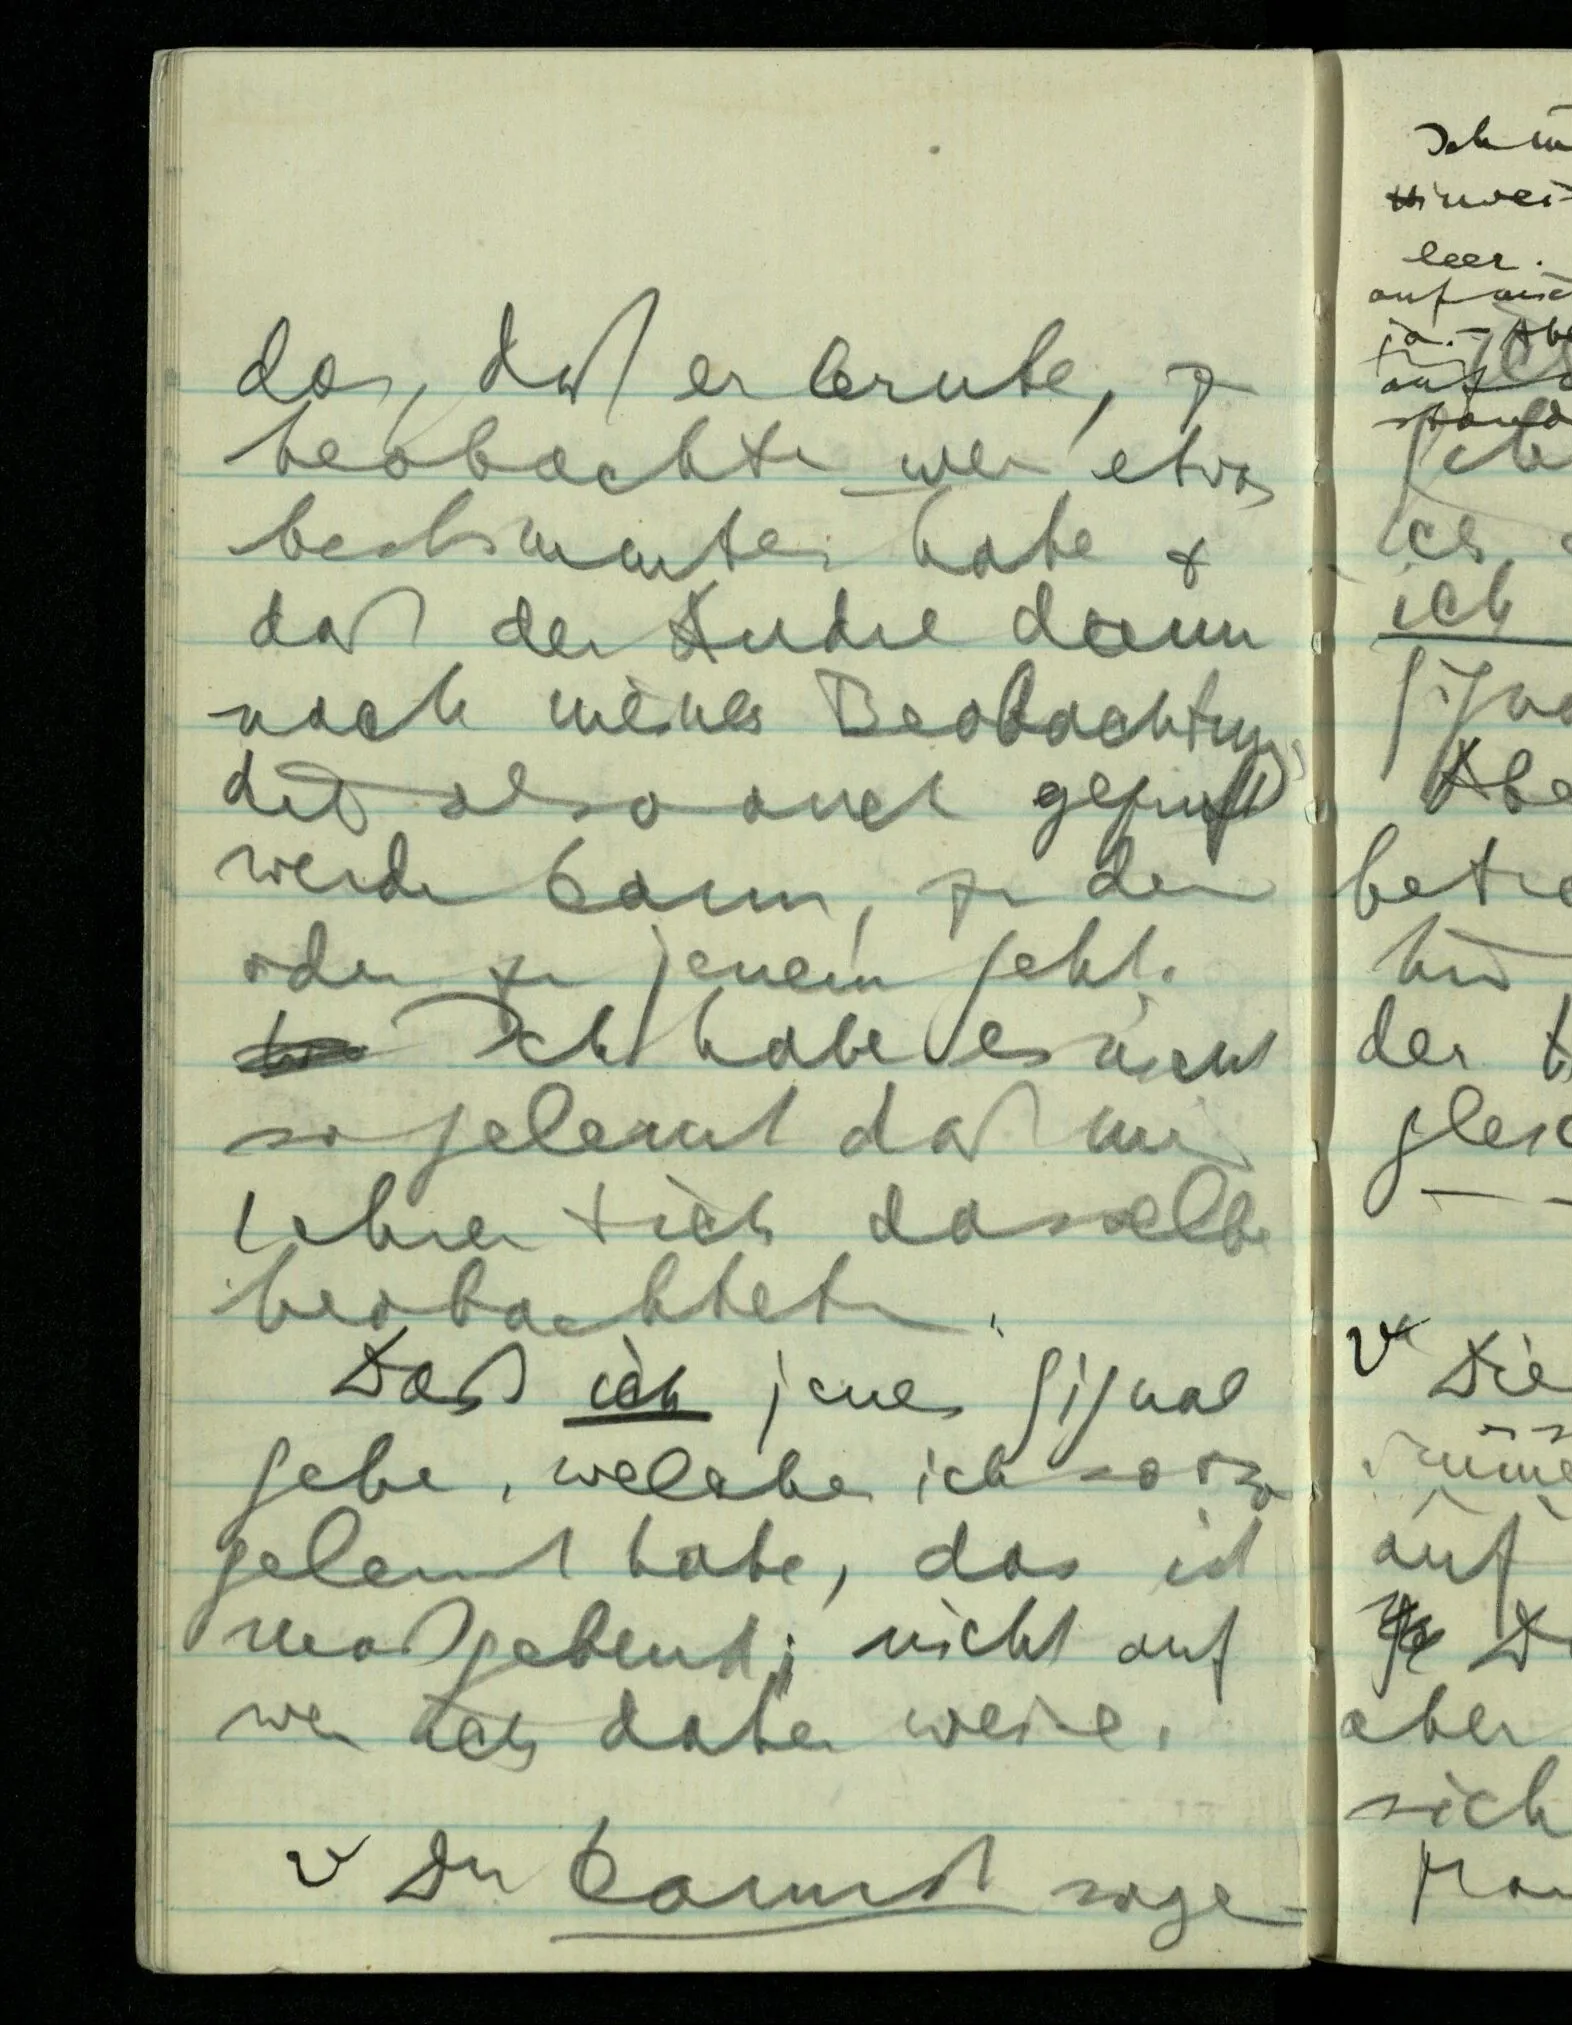 das, daß er lernte, zu
beobachten wer etwas
bestimmtes habe &
daß der Andre dann
nach meiner Beobachtung,
die also auch geprüft
werden kann, zu dem
oder zu jenem geht.
Ich habe es nicht
so gelernt daß meine
Lehrer sich dasselbe
beobachteten.
Daß ich jenes Signal
gebe, welches ich so
gelernt habe, das ist
maßgebend; nicht auf
wen ich dabei weise.
v Du kannst sage-
Ich
Hinwei-
leer.
auf
ja. – Abe
auf
ich
Signa
Abe
betra
hin
der
gleic
v Die
auf
aber
sich